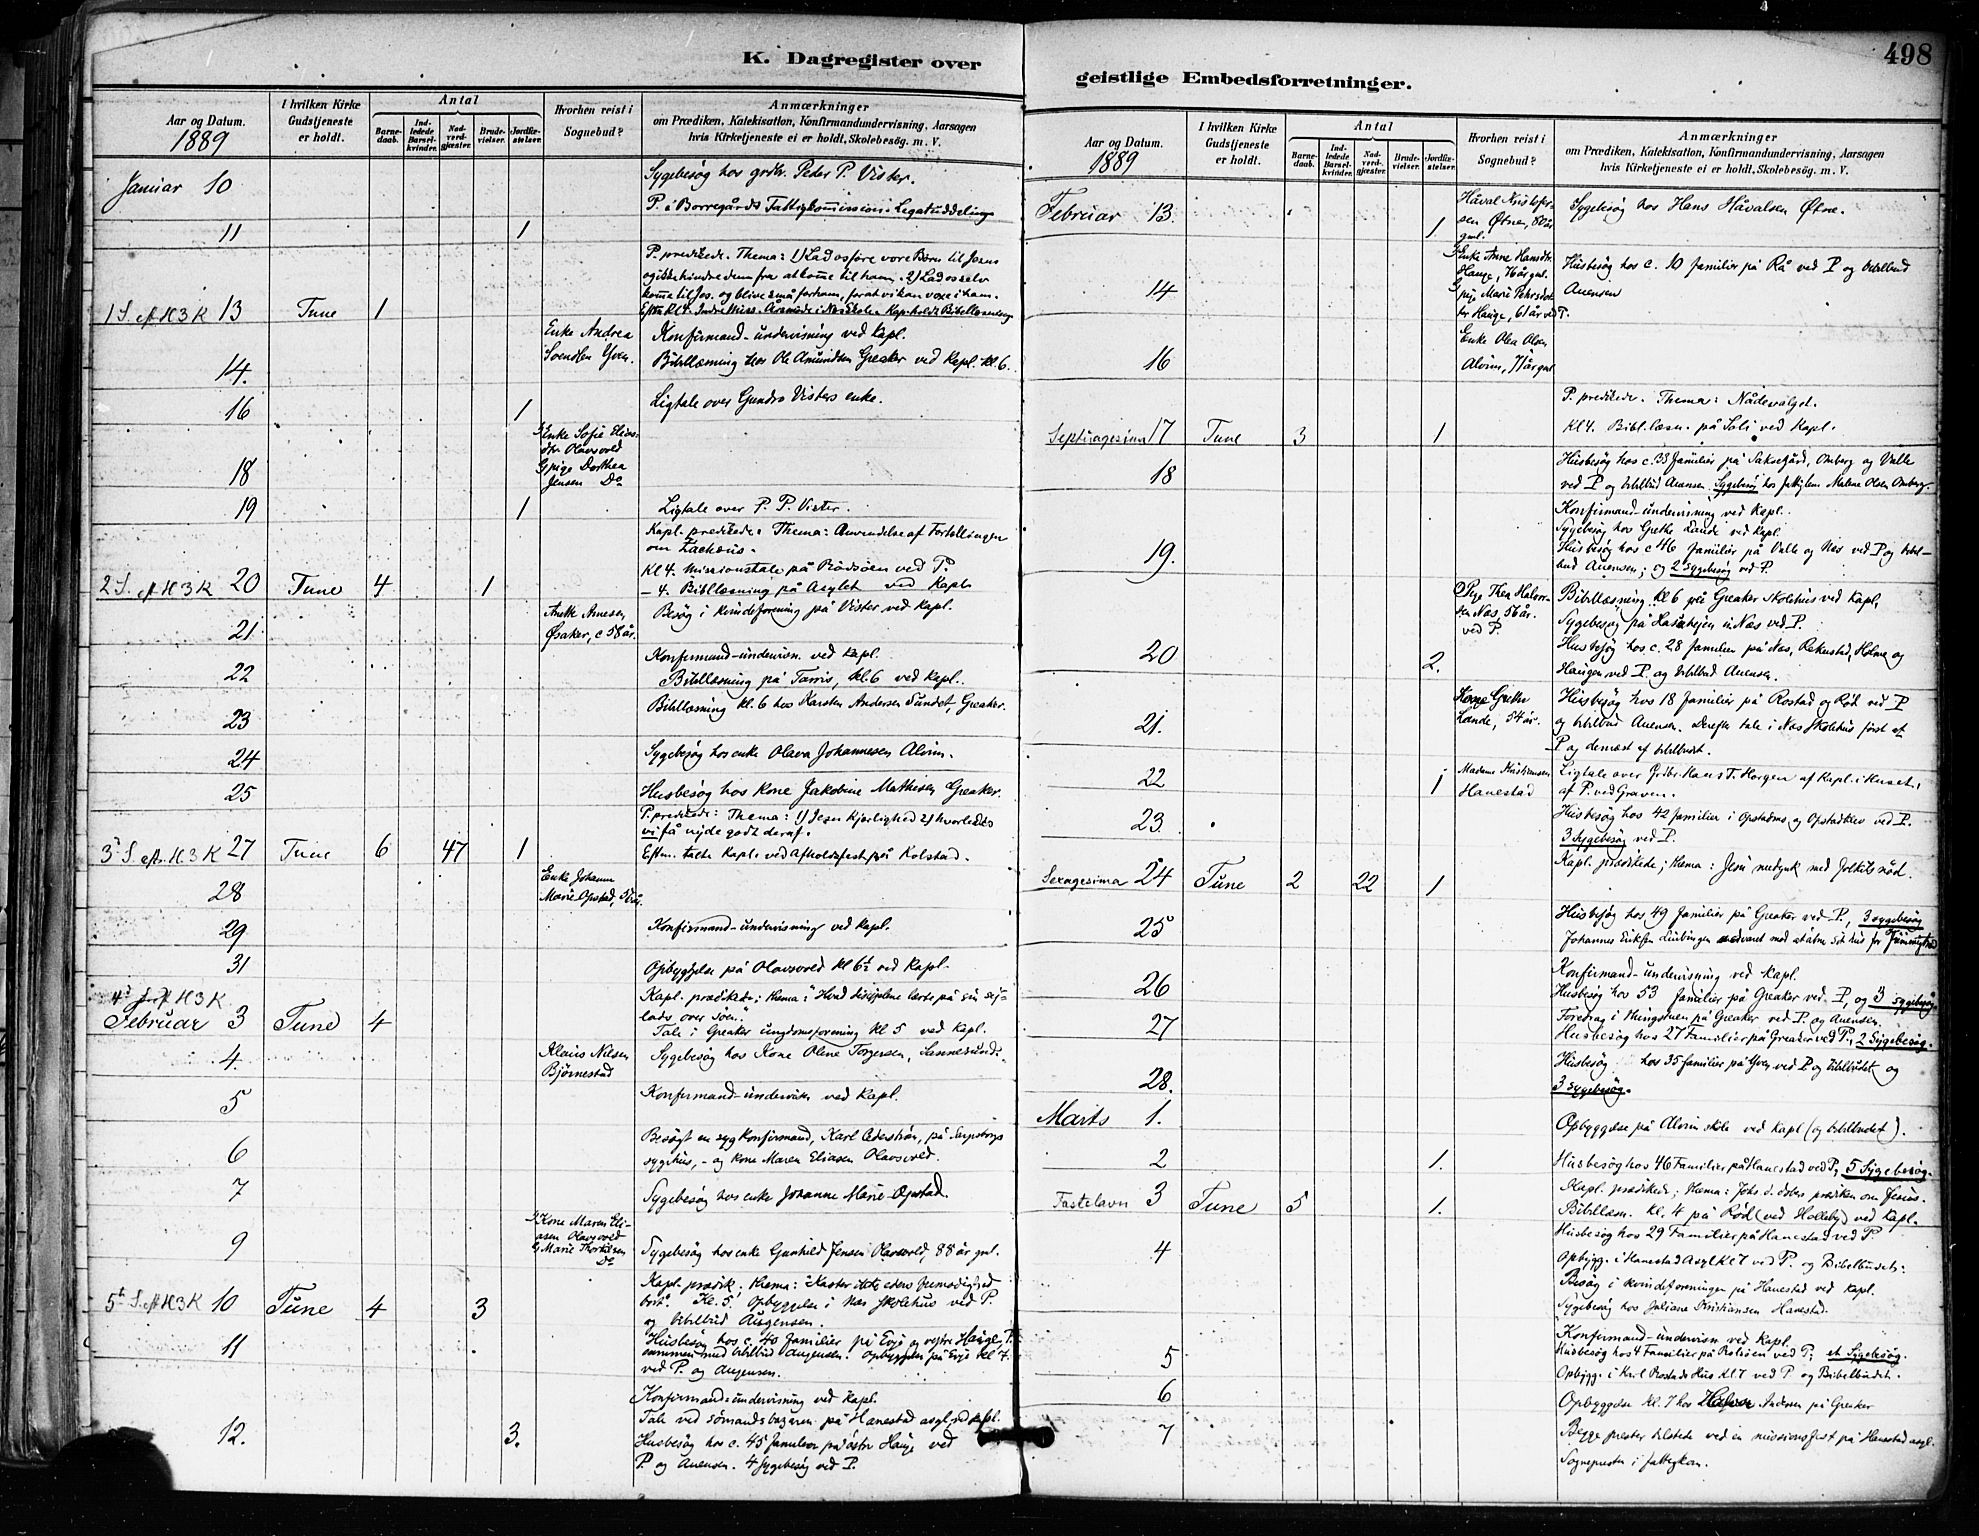 498
K. Dagregister over
geistlige Embedsforretninger.
Aar og Datum.
1889
I hvilken Kirke
Gudstjeneste
er holdt.
Antal
Barne-
daab.
Ind-
ledede
Barsel-
kvinder.
Nad-
verd-
gjæster.
Brude-
vielser.
Jordfæ-
stelser.
Hvorhen reist i
Sognebud?
Anmærkninger
om Prædiken, Katekisation, Konfirmandundervisning, Aarsagen
hvis Kirketjeneste ei er holdt, Skolebesøg. m. V.
Januar 10
Sygebesög hos grdbr. Peder P. Vister.
P. i Borregårds Fattigkommission. Legatuddeling
11 1
P. predikede. Thema: 1) Lad os føre vore Børn til Jesus
og ikke hindre dem fra at komme til ham. 2) Lad os selv
komme til Jes. og blive små for ham, forat vi kan voxe i ham.
1 S. e. H3K 13 Tune 1
14.
Enke Andrea
Svendsen Yven.
Konfirmand-undervisning ved Kapl.
Bibellæsning hos Ole Amundsen Greaker ved Kapl. kl. 6.
16 1
Ligtale over Gundro Visters enke.
18
Enke Sofie Elias-
dtr. Olavsvold
pige Dorthea
Jensen Do
19 1
Ligtale over P. P. Vister.
Kapl. predikede: Thema: Anvendelse af Fortellingen
om Zachæus.
2 S. e. H3K 20 Tune 4 1
Kl 4. Missionstale på Rödsöen ved P.
– 4. Bibellæsning på Asylet ved Kapl.
21
Anette Arnesen
Øsaker, c 58 år.
Besøg i kvindeforening på Vister ved Kapl.
22
Konfirmand-undervisn. ved Kapl.
Bibellæsning på Torris, kl. 6 ved Kapl.
23
Bibellæsning kl. 6 hos Karsten Andersen Sundet, Greaker.
24
Sygebesög hos enke Olava Johannesen Alvim.
25
Husbesøg hos Kone Jakobine Mathisen Greaker.
P. predikede: Thema: 1) Jesu Kjærlighed 2) hvorledes
vi få nyde godt deraf.
3 S. e. H3K 27 Tune 6 47 1
Efterm. talte Kapl. ved Afholdsfest på Kolstad.
28
Enke Johanne
Marie Opstad,
29
Konfirmand-undervisning ved Kapl.
31
Opbyggelse på Olavsvold kl 6½ ved Kapl.
4 S. e. H3K
Februar 3 Tune 4
Kapl. prædikede; thema: "Hvad disciplene lærte på sin sej-
lads over søen."
Tale i Greaker ungdomsforening kl 5 ved Kapl.
4.
Klaus Nilsen
Bjørnestad
Sygebesög hos Kone Oline Torgersen, Sannesund.
5
Konfirmand-undervisn ved Kapl.
6
Besøgt en syg Konfirmand, Karl Cederstrøm, på Sarpsborgs
sygehus, – og kone Maren Eliasen Olavsvold.
7
Sygebesög hos enke Johanne Marie Opstad.
9
Kone Maren Eli-
asen Olavsvold
Marie Thorkilsen
Do
Sygebesög hos enke Gunhild Jensen Olavsvold, 88 år gml.
5 S. e. H3K 10 Tune 4 3
Kapl. prædik; thema: "Kaster ikke eders frimodighed
bort". Kl. 5. Opbyggelse i Nes Skolehus ved P.
og bibelbud Augensen.
11
Husbesøg hos c. 40 familier på Evje og vestre Hauge, P.
sammen med bibelbud Augensen. Opbyggelse på Evje kl 7.
ved P. og Augensen.
Konfirmand-undervisning ved Kapl.
12. 3.
Tale ved sømandsbazaren på Hanestad asyl ved Kapl.
Husbesøg hos c. 45 familier på østre Hauge ved
P. og Auensen. 4 sygebesøg ved P.
Aar og Datum.
1889
I hvilken Kirke
Gudstjeneste
er holdt.
Antal
Barne-
daab.
Ind-
ledede
Barsel-
kvinder.
Nad-
verd-
gjæster.
Brude-
vielser.
Jordfæ-
stelser.
Hvorhen reist i
Sognebud?
Anmærkninger
om Prædiken, Katekisation, Konfirmandundervisning, Aarsagen
hvis Kirketjeneste ei er holdt, Skolebesøg. m. V.
Februar 13. 1.
Håval Kristofer-
sen Øtne, 80 år
gml.
Sygebesög hos Hans Håvalsen Øtne.
14
Enke Anne Hansdtr.
Hauge, 76 år gml.
pige Marie Pehrsdat-
ter Hauge, 61 år ved P.
Husbesøg hos c. 10 familier på Rå ved P og bibelbud
Auensen
16
Enke Olea Olsen
Alvim, 71 år gml
P. predikede. Thema: Nådevalget.
Septuagesima 17 Tune 3 1
Kl 4. Bibl.læsn. på Soli ved Kapl.
18
Husbesøg hos c. 33 familier på Saksegård, Omberg og Valle
ved P og bibelbud Auensen. Sygebesøg hos fattiglem Malene Olsen Omberg.
19.
Konfirmand-undervisning ved Kapl.
Sygebesøg hos Grethe Lande ved Kapl.
Husbesøg hos c 46 familier på Valle og Nes ved P og bibel-
bud Auensen; og 2 sygebesøg ved P.
20 2.
Pige Thea Halvor-
sen Nes, 56 år.
ved P.
Bibellæsning kl 6 på Greaker Skolehus ved Kapl,
Husbesøg hos c. 28 familier på Nes, Rekustad, Holme og
Haugen ved P. og bibelbud Auensen.
21.
Kone Grethe
Lande, 54 år.
Husbesøg hos 18 familier på Rostad og Rød ved P
og bibelbud Auensen. Derefter tale i Nes Skolehus først af
P og dernæst af bibelbudet.
22 1
Madame Kristiansen
Hanestad
Ligtale over Grdbr. Hans T. Horgen af Kapl. i Huset,
af P. ved Graven.
23.
Husbesøg hos 42 familier i Opstadmos og Opstadkles ved P.
3 sygebesøg ved P.
Sexagesima 24 Tune 2 22 1
Kapl. prædikede; thema: Jesu medynk med folkets nød.
25
Husbesøg hos 49 familier på Greaker ved P., 3 sygebesøg
26
Konfirmand-undervisning ved Kapl.
Husbesøg hos 53 familier på Greaker ved P., og 3 sygebesøg
27
Foredrag i Thingstuen på Greaker ved P. og Auensen
Husbesøg hos 27 Familier på Greaker ved P., 2 Sygebesøg.
28.
Husbesøg hos 35 familier på Yven ved P og bibelbudet og
3 sygebesøg.
Marts 1.
Opbyggelse på Alvim skole ved Kapl (og bibelbudet).
2 1.
Husbesøg hos 46 Familier på Hanestad ved P., 5 Sygebesøg.
Fastelavn 3 Tune 5 1.
Kapl. prædikede; thema: Johs. d. døbers prædiken om Jesus.
Bibellæsn. kl. 4 på Rød (ved Holleby) ved Kapl.
4
Husbesøg hos 29 Familier på Hanestad ved P
Opbygg. i Hanestad Asyl Kl 7 ved P. og Bibelbudet.
Besøg i kvindeforeningen på Hanestad ved Kapl.
Sygebesøg hos Juliane Kristiansen Hanestad.
5
Konfirmand-undervisn ved Kapl.
Husbesøg hos 4 Familier på Rolsøen ved P; et Sygebesøg.
Opbygg. i Karl Rostads Hus Kl 7 ved P. og Bibelbudet.
6
Opbyggelse kl. 7 hos Halvor Andersen på Greaker
7
Begge prester tilstede ved en missionsfest på Hanestad asyl.
Sognepresten i fattigkom.